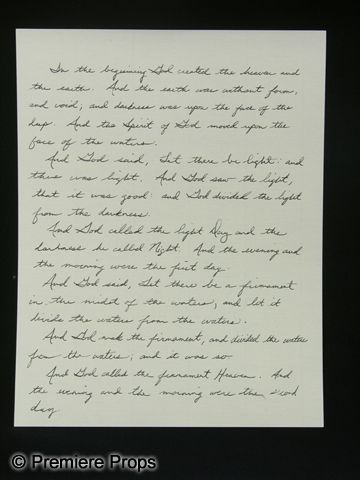 In the beginning God created the heaven and
the earth. And the earth was without form,
and void; and darkness was upon the face of the
deep. And the Spirit of God moved upon the
face of the waters.
And God said, Let there be light: and
there was light. And God saw the light,
that it was good: and God divided the light
from the darkness.
And God called the light Day and the
darkness he called Night. And the evening and
the morning were the first day.
And God said, Let there be a firmament
in the midst of the waters, and let it
divide the waters from the waters.
And God made the firmament, and divided the waters
from the waters; and it was so.
And God called the firmament Heaven. And
the evening and the morning were the second
day.
© Premiere Props